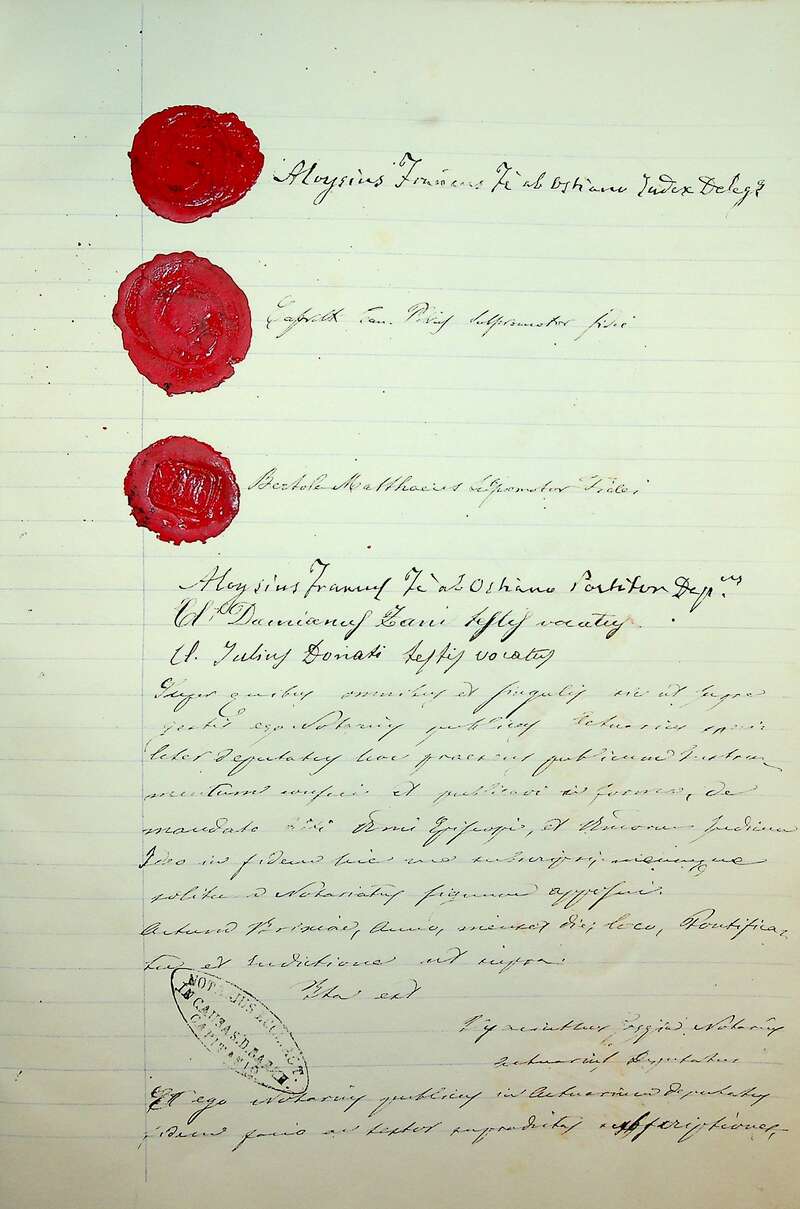 Aloysius Francus Fè ab Ostiano Judex Deleg
Can. Subpromotor fidei
Bertoli Matthaeus Subpromotor Fidei
Aloysius Francus Fè ab Ostiano Portitor Dep.us
Damianus Zani testis vocatus
Julius Donati testis vocatus
Super quibus omnibus et singulis sic ut supra
gestis ego Notarius publicus Actuarius speci
liter deputatus hoc praesens publicum Instru
mentum confeci et publicavi in forma, de
mandato Episcopi, et Judicum
Ideo in fidem hic me subscripsi, meumque
solitum Notariatus signum apposui.
Actum Brixiae, Anno, mense, die, loco, Pontifica-
tu et Indictione ut supra.
Ita est
NOTARIUS
IN CAUSAS.
CAPITANIO
Hyacinthus Notarius
Actuarius Deputatus
Et ego Notarius publicus in Actuarium deputatus
fidem facio testes supradictas subscriptiones,